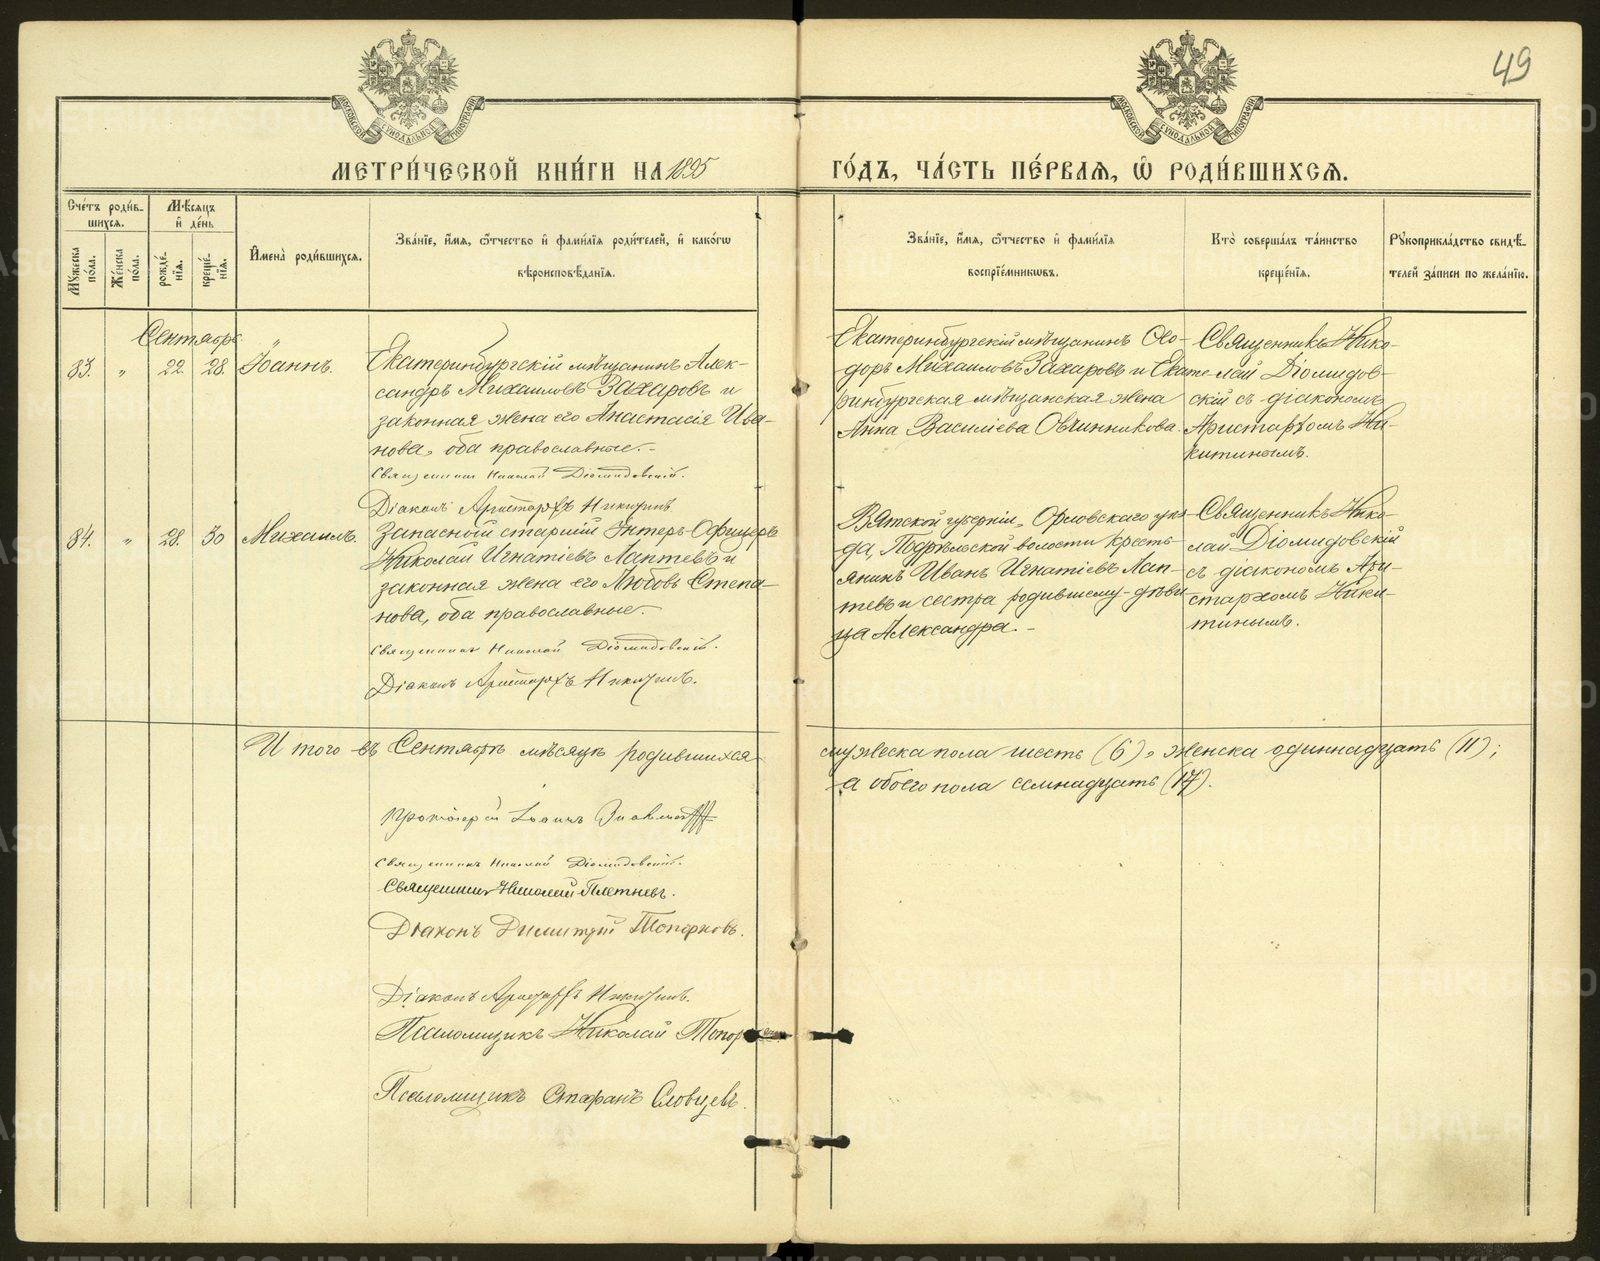 49
МОСКОВСКОЙ СѴНОДАЛЬНОЙ ТИПОГРАФІИ
МОСКОВСКОЙ СѴНОДАЛЬНОЙ ТИПОГРАФІИ
МЕТРИ́ЧЕСКОЙ КНИ́ГИ НА 1895
ГО́ДЪ, ЧА́СТЬ ПЕ́РВАЯ, Ѽ РОДИ́ВШИХСЯ.
Сче́тъ роди́в-
шихся.
Мѣ́сяцъ
и де́нь
Му́жеска по́ла.
Же́нска по́ла.
рожде́-
нія.
креще́-
нія.
Имена̀ роди́вшихся.
Зва́ніе, и́мя, ѻ́тчество и фами́лія роди́телей, и како́гѡ
вѣроисповѣ́данія.
Зва́ніе, и́мя, ѻ́тчество и фами́лія
воспріе́мниковъ.
Кто̀ соверша́лъ та́инство
креще́нія.
Рꙋкоприкла́дство свидѣ́-
телей за́писи по жела́нію.
Сентябрь
83. " 22 28 Іоаннъ.
Екатеринбургскій мѣщанинъ Алек-
сандръ Михаиловъ Захаровъ и
законная жена его Анастасія Ива-
нова, оба православные.-
Священникъ Николай Діомидовскій.
Діаконъ Аристархъ Никитинъ
Екатеринбургскій мѣщанинъ Ѳео-
доръ Михаиловъ Захаровъ и Екате-
ринбургская мѣщанская жена
Анна Василіева Овчинникова.
Священникъ Нико-
лай Діомидов-
скій съ діакономъ
Аристархомъ Ни-
китинымъ.
84. " 28 30 Михаилъ.
Запасный старшій Унтеръ-Офицеръ
Николай Игнатіевъ Лаптевъ и
законная жена его Любовь Степа-
нова, оба православные.-
Священникъ Николай Діомидовскій.
Діаконъ Аристархъ Никитинъ.
Вятской губерніи, Орловскаго уѣз-
да, Подрѣльской волости крестъ-
янинъ Иванъ Игнатіевъ Лап-
тевъ и сестра родившему-дѣви-
ца Александра.-
Священникъ Нико-
лай Діомидовскій
съ діакономъ Ари-
стархомъ Ники-
тинымъ.
И того въ Сентябрѣ мѣсяцѣ родившихся
мужеска пола шесть (6), женска одиннадцать (11);
а обоего пола семнадцать (17).
Протоіерей Іоаннъ
Священникъ Николай Діомидовскій.
Священникъ Николай Плетневъ.
Діаконъ Димитрій Топорковъ.
Діаконъ Аристархъ Никитинъ.
Псаломщикъ Николай Топор
Псаломщикъ Стефанъ Словцевъ.
METRIKI.GASO-URAL.RU